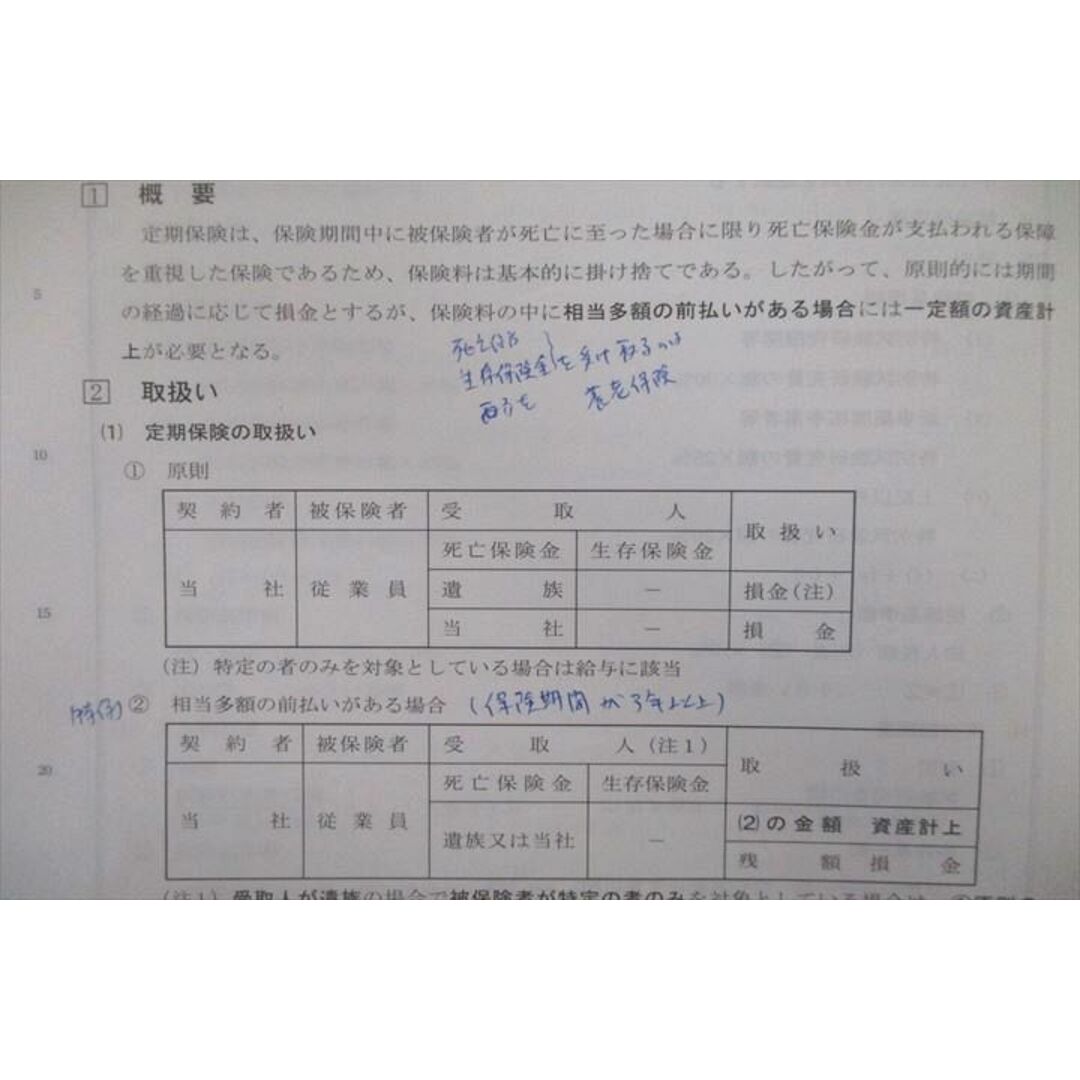 1 概 要
定期保険は、保険期間中に被保険者が死亡に至った場合に限り死亡保険金が支払われる保障
を重視した保険であるため、保険料は基本的に掛け捨てである。したがって、原則的には期間
5
の経過に応じて損金とするが、保険料の中に相当多額の前払いがある場合には一定額の資産計
上が必要となる。
生存保険金を受け取るのは
両方を 養老保険
2 取扱い
(1) 定期保険の取扱い
10
① 原則
契 約 者 被保険者 受 取 人 取 扱 い
死亡保険金 生存保険金
当 社 従 業 員 遺 族 − 損金(注)
15
当 社 − 損 金
(注) 特定の者のみを対象としている場合は給与に該当
特例 ② 相当多額の前払いがある場合 (保険期間が3年以上)
契 約 者 被保険者 受 取 人(注1) 取 扱 い
20
死亡保険金 生存保険金
当 社 従 業 員 遺族又は当社 − (2)の金額 資産計上
残 額 損 金
(注1) 受取人が遺族の場合で被保険者が特定の者のみを対象としている場合は